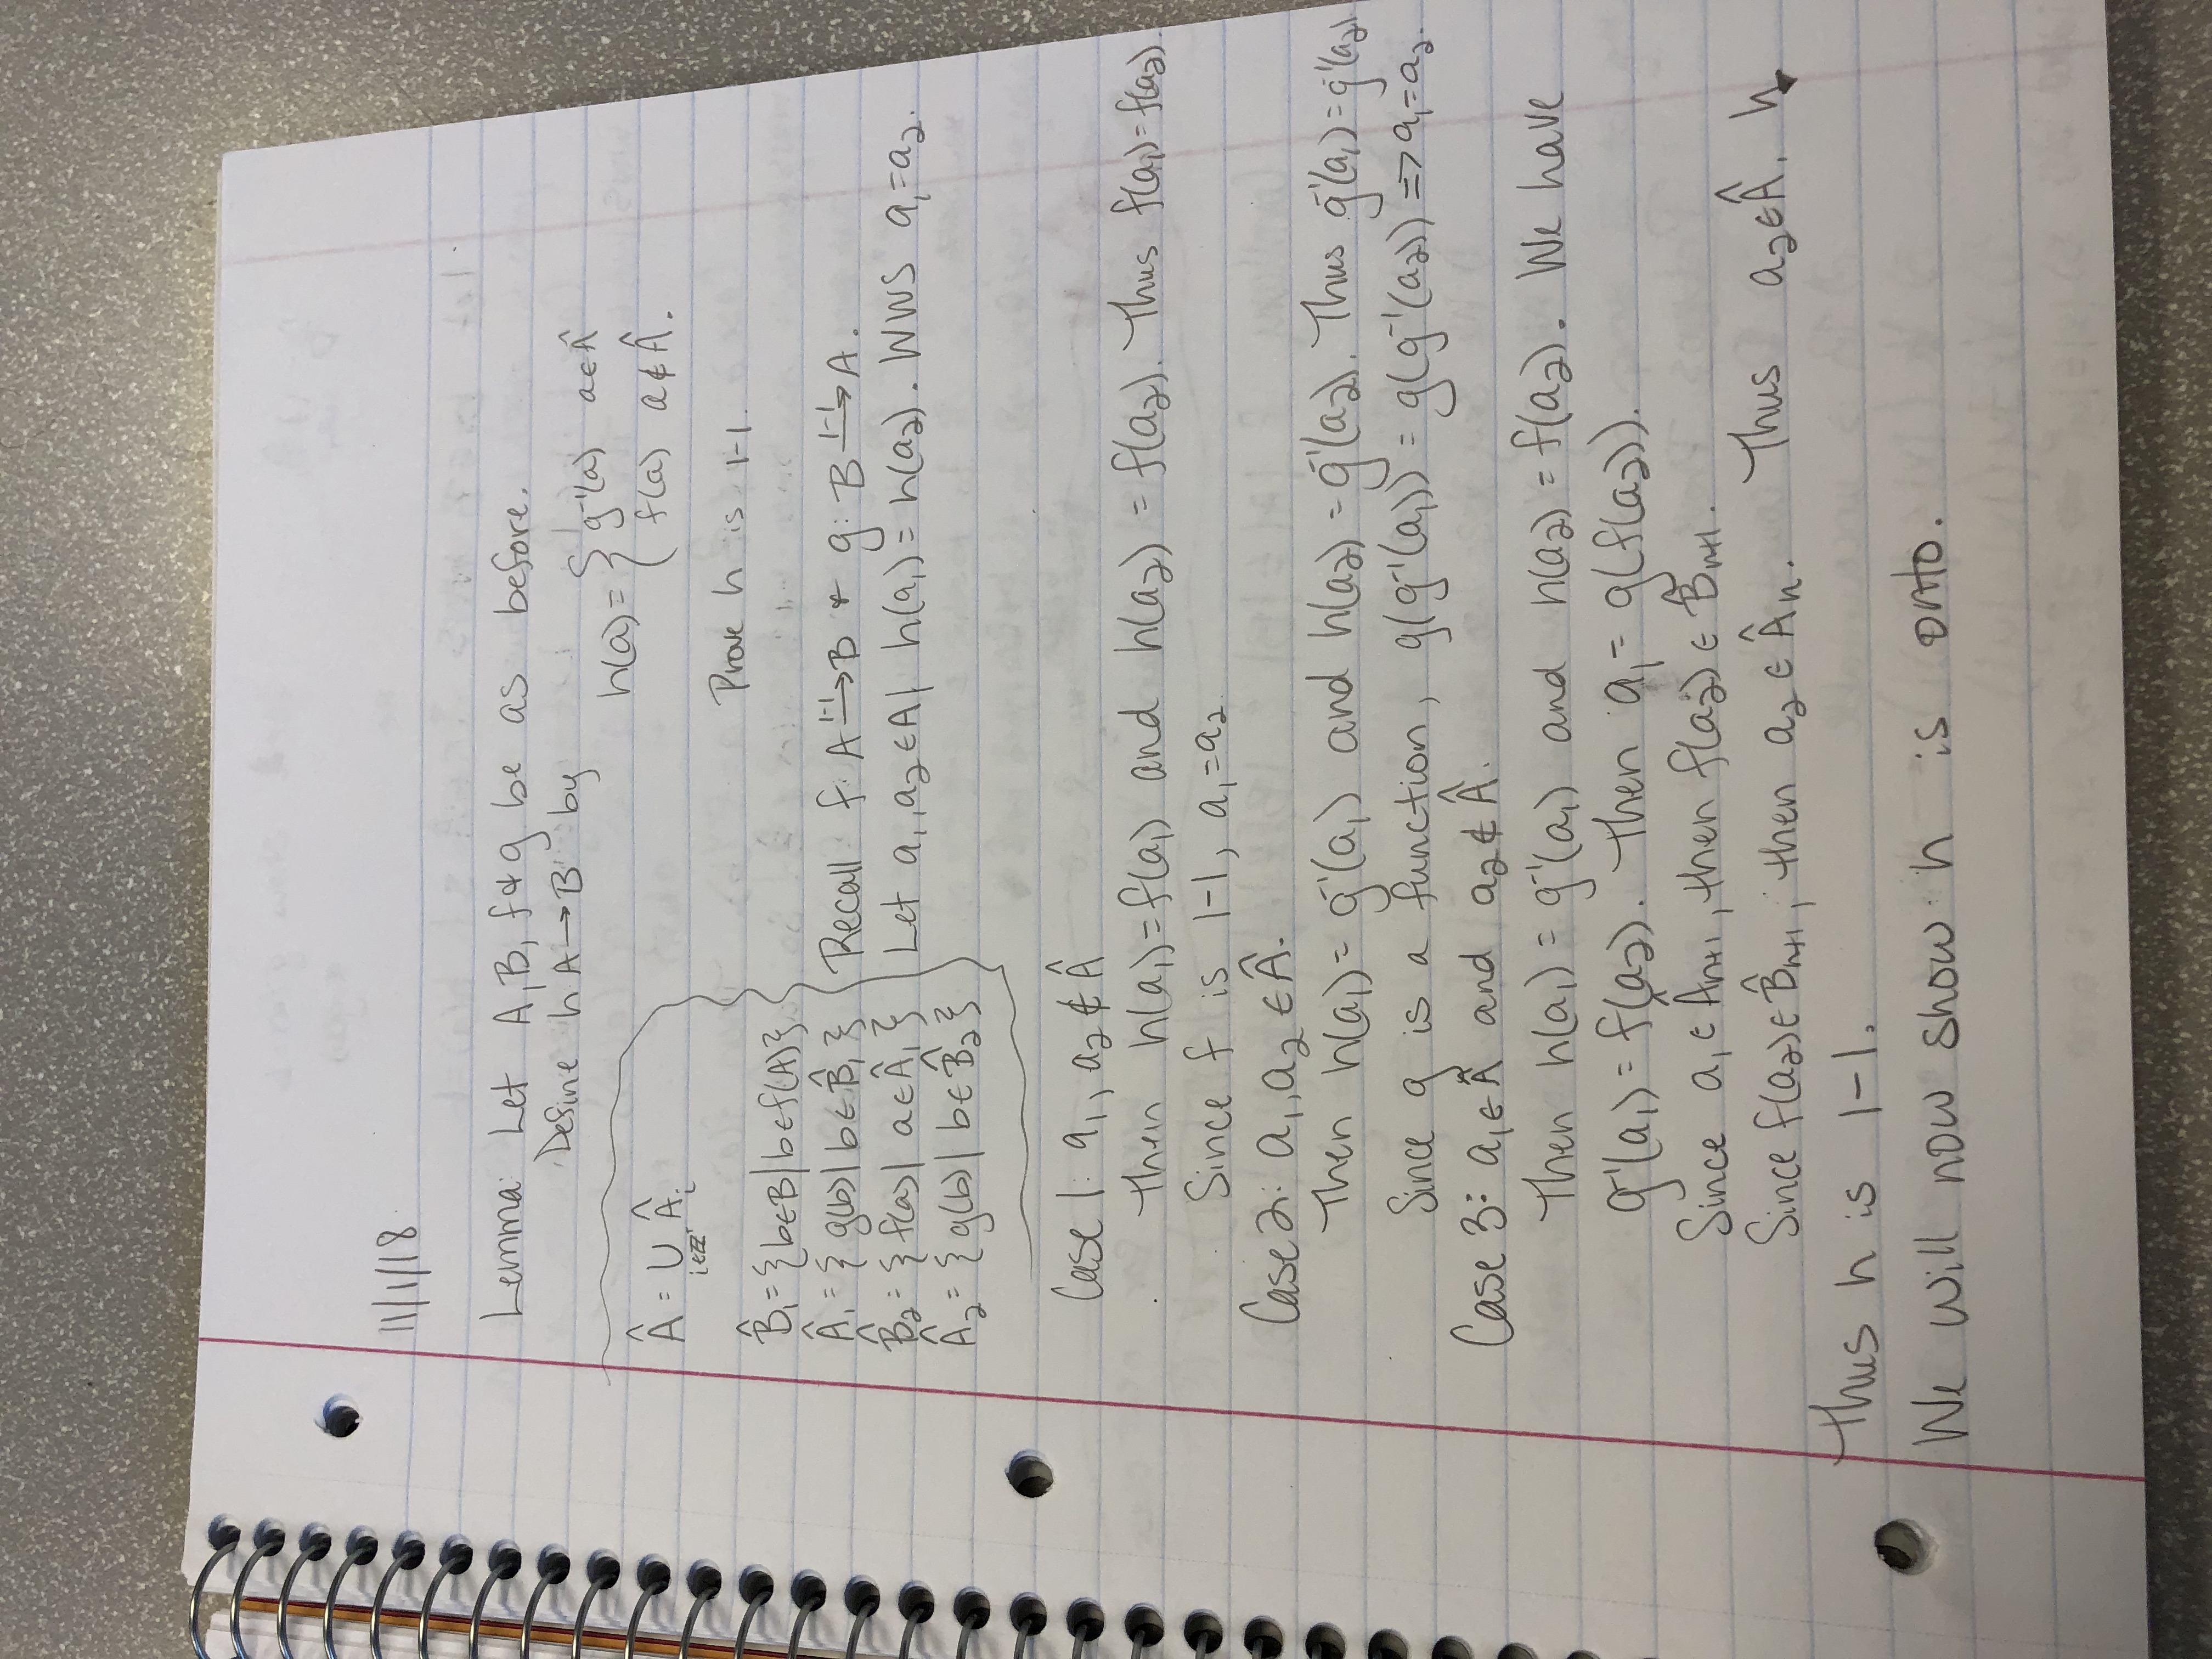 11/1/18
Lemma: Let A, B, f & g be as before.
Define h A→B by
h(a) = { g⁻¹(a) a∈Â
f(a) a∉Â.
Prove h is 1-1.
Â = ∪ Âᵢ
i∈ℤ⁺
B̂₁ = {b∈B | b∈f(A)}
Â₁ = { g(b) | b∈B̂₁ }
B̂₂ = { f(a) | a∈Â₁ }
Â₂ = { g(b) | b∈B̂₂ }
Recall f: A 1-1→ B & g: B 1-1→ A.
Let a₁, a₂ ∈ A | h(a₁) = h(a₂). WWS a₁=a₂.
Case 1: a₁, a₂ ∉ Â
Then h(a₁)=f(a₁) and h(a₂) = f(a₂). Thus f(a₁)=f(a₂).
Since f is 1-1, a₁=a₂
Case 2: a₁, a₂ ∈ Â.
Then h(a₁) = g⁻¹(a₁) and h(a₂) = g⁻¹(a₂). Thus g⁻¹(a₁) = g⁻¹(a₂)
Since g is a function, g(g⁻¹(a₁)) = g(g⁻¹(a₂)) => a₁=a₂.
Case 3: a₁∈Â and a₂∉Â.
Then h(a₁) = g⁻¹(a₁) and h(a₂) = f(a₂). We have
g⁻¹(a₁) = f(a₂). Then a₁ = g(f(a₂)).
Since a₁ ∈ Âₙ₊₁, then f(a₂) ∈ B̂ₙ₊₁.
Since f(a₂)∈B̂ₙ₊₁, then a₂ ∈ Âₙ. Thus a₂∈Â.
Thus h is 1-1.
We will now show h is onto.